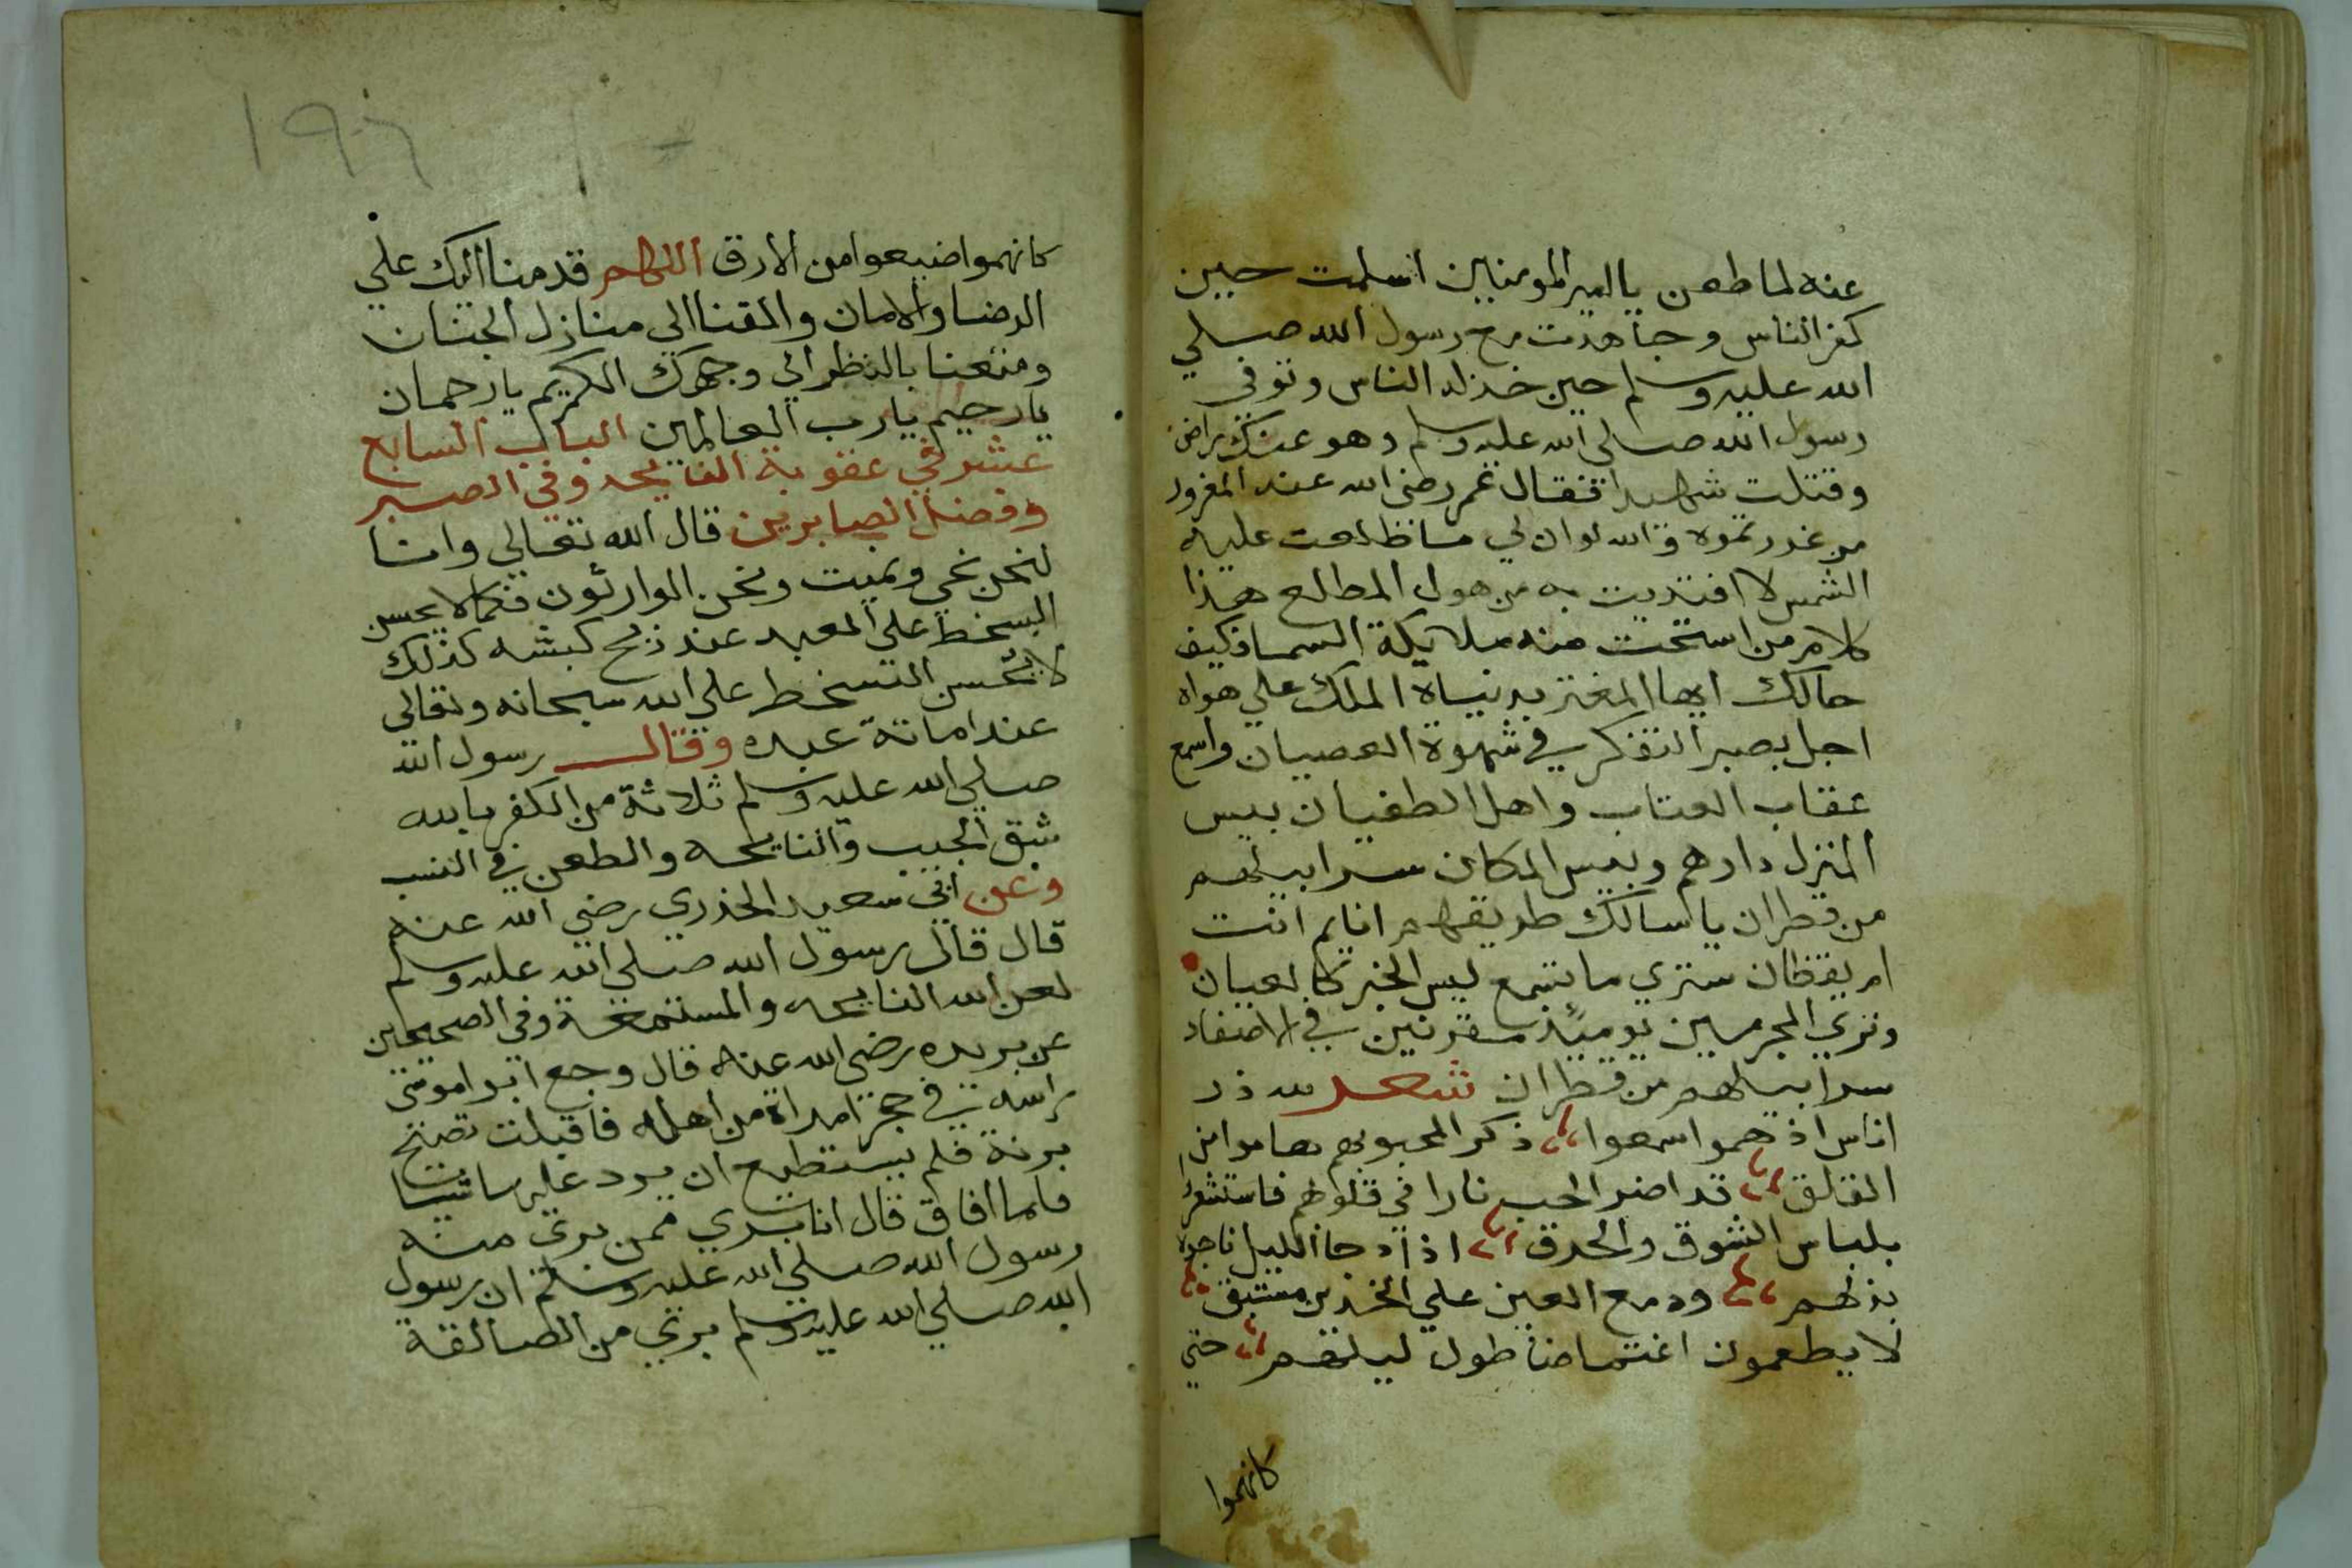 عنه لما طعن يا امير المومنين اسلمت حين
كفر الناس وجاهدت مع رسول الله صلي
الله عليه وسلم حين خذله الناس وتوفي
رسول الله صلي الله عليه وسلم وهو عنك راض
وقتلت شهيدا فقال عمر رضي الله عنه المغرور
من غررتموه والله لو ان لي ما طلعت عليه
الشمس لا افتديت به من هول المطلع هذا
كلام من استحت منه ملايكة السما فكيف
حالك ايها المغتر بدنياه الملك علي هواه
اجل بصر التفكر في شهوة العصيان واسمع
عقاب العتاب واهل الطغيان بيس
المنزل دارهم وبيس المكان سرابيلهم
من قطران يا سالك طريقهم انايم انت
ام يقظان ستري ما تسمع ليس الخبر كالعيان
وتري المجرمين يومئذ مقرنين في الاصفاد
سرابيلهم من قطران شعر لله در
اناس اذ هموا سمعوا ذكر المحبوبهم هاموا من
القلق قد اضر الحب نارا في قلوبهم فاستشعروا
بلباس الشوق والحرق اذا دجا الليل ناجوه
بذلهم ودمع العين علي الخدين مستبق
لا يطعمون اغتماضا طول ليلهم حتي
كانهموا
١٩٦
كانهموا ضيعوا من الارق اللهم قدمنا اليك علي
الرضا والامان والقنا الي منازل الجنان
ومتعنا بالنظر الي وجهك الكريم يا رحمان
يا رحيم يا رب العالمين الباب السابع
عشر في عقوبة النايحه وفي الصبر
وفضل الصابرين قال الله تعالي وانا
لنحن نحي ونميت ونحن الوارثون فكما لا يحسن
السخط علي العبد عند ذبح كبشه كذلك
لا يحسن التسخط علي الله سبحانه وتعالي
عند اماتة عبده وقال رسول الله
صلي الله عليه وسلم ثلاثة من الكفر بالله
شق الجيب والنايحه والطعن في النسب
وعن ابي سعيد الخدري رضي الله عنه
قال قال رسول الله صلي الله عليه وسلم
لعن الله النايحه والمستمعة وفي الصحيحين
عن بريده رضي الله عنه قال وجع ابوا موسي
راسه في حجر امراة من اهله فاقبلت تصيح
برنة فلم يستطيع ان يرد عليها شيا
فلما افاق قال انا بري ممن بري منه
رسول الله صلي الله عليه وسلم ان رسول
الله صلي الله عليه وسلم بري من الصالقة